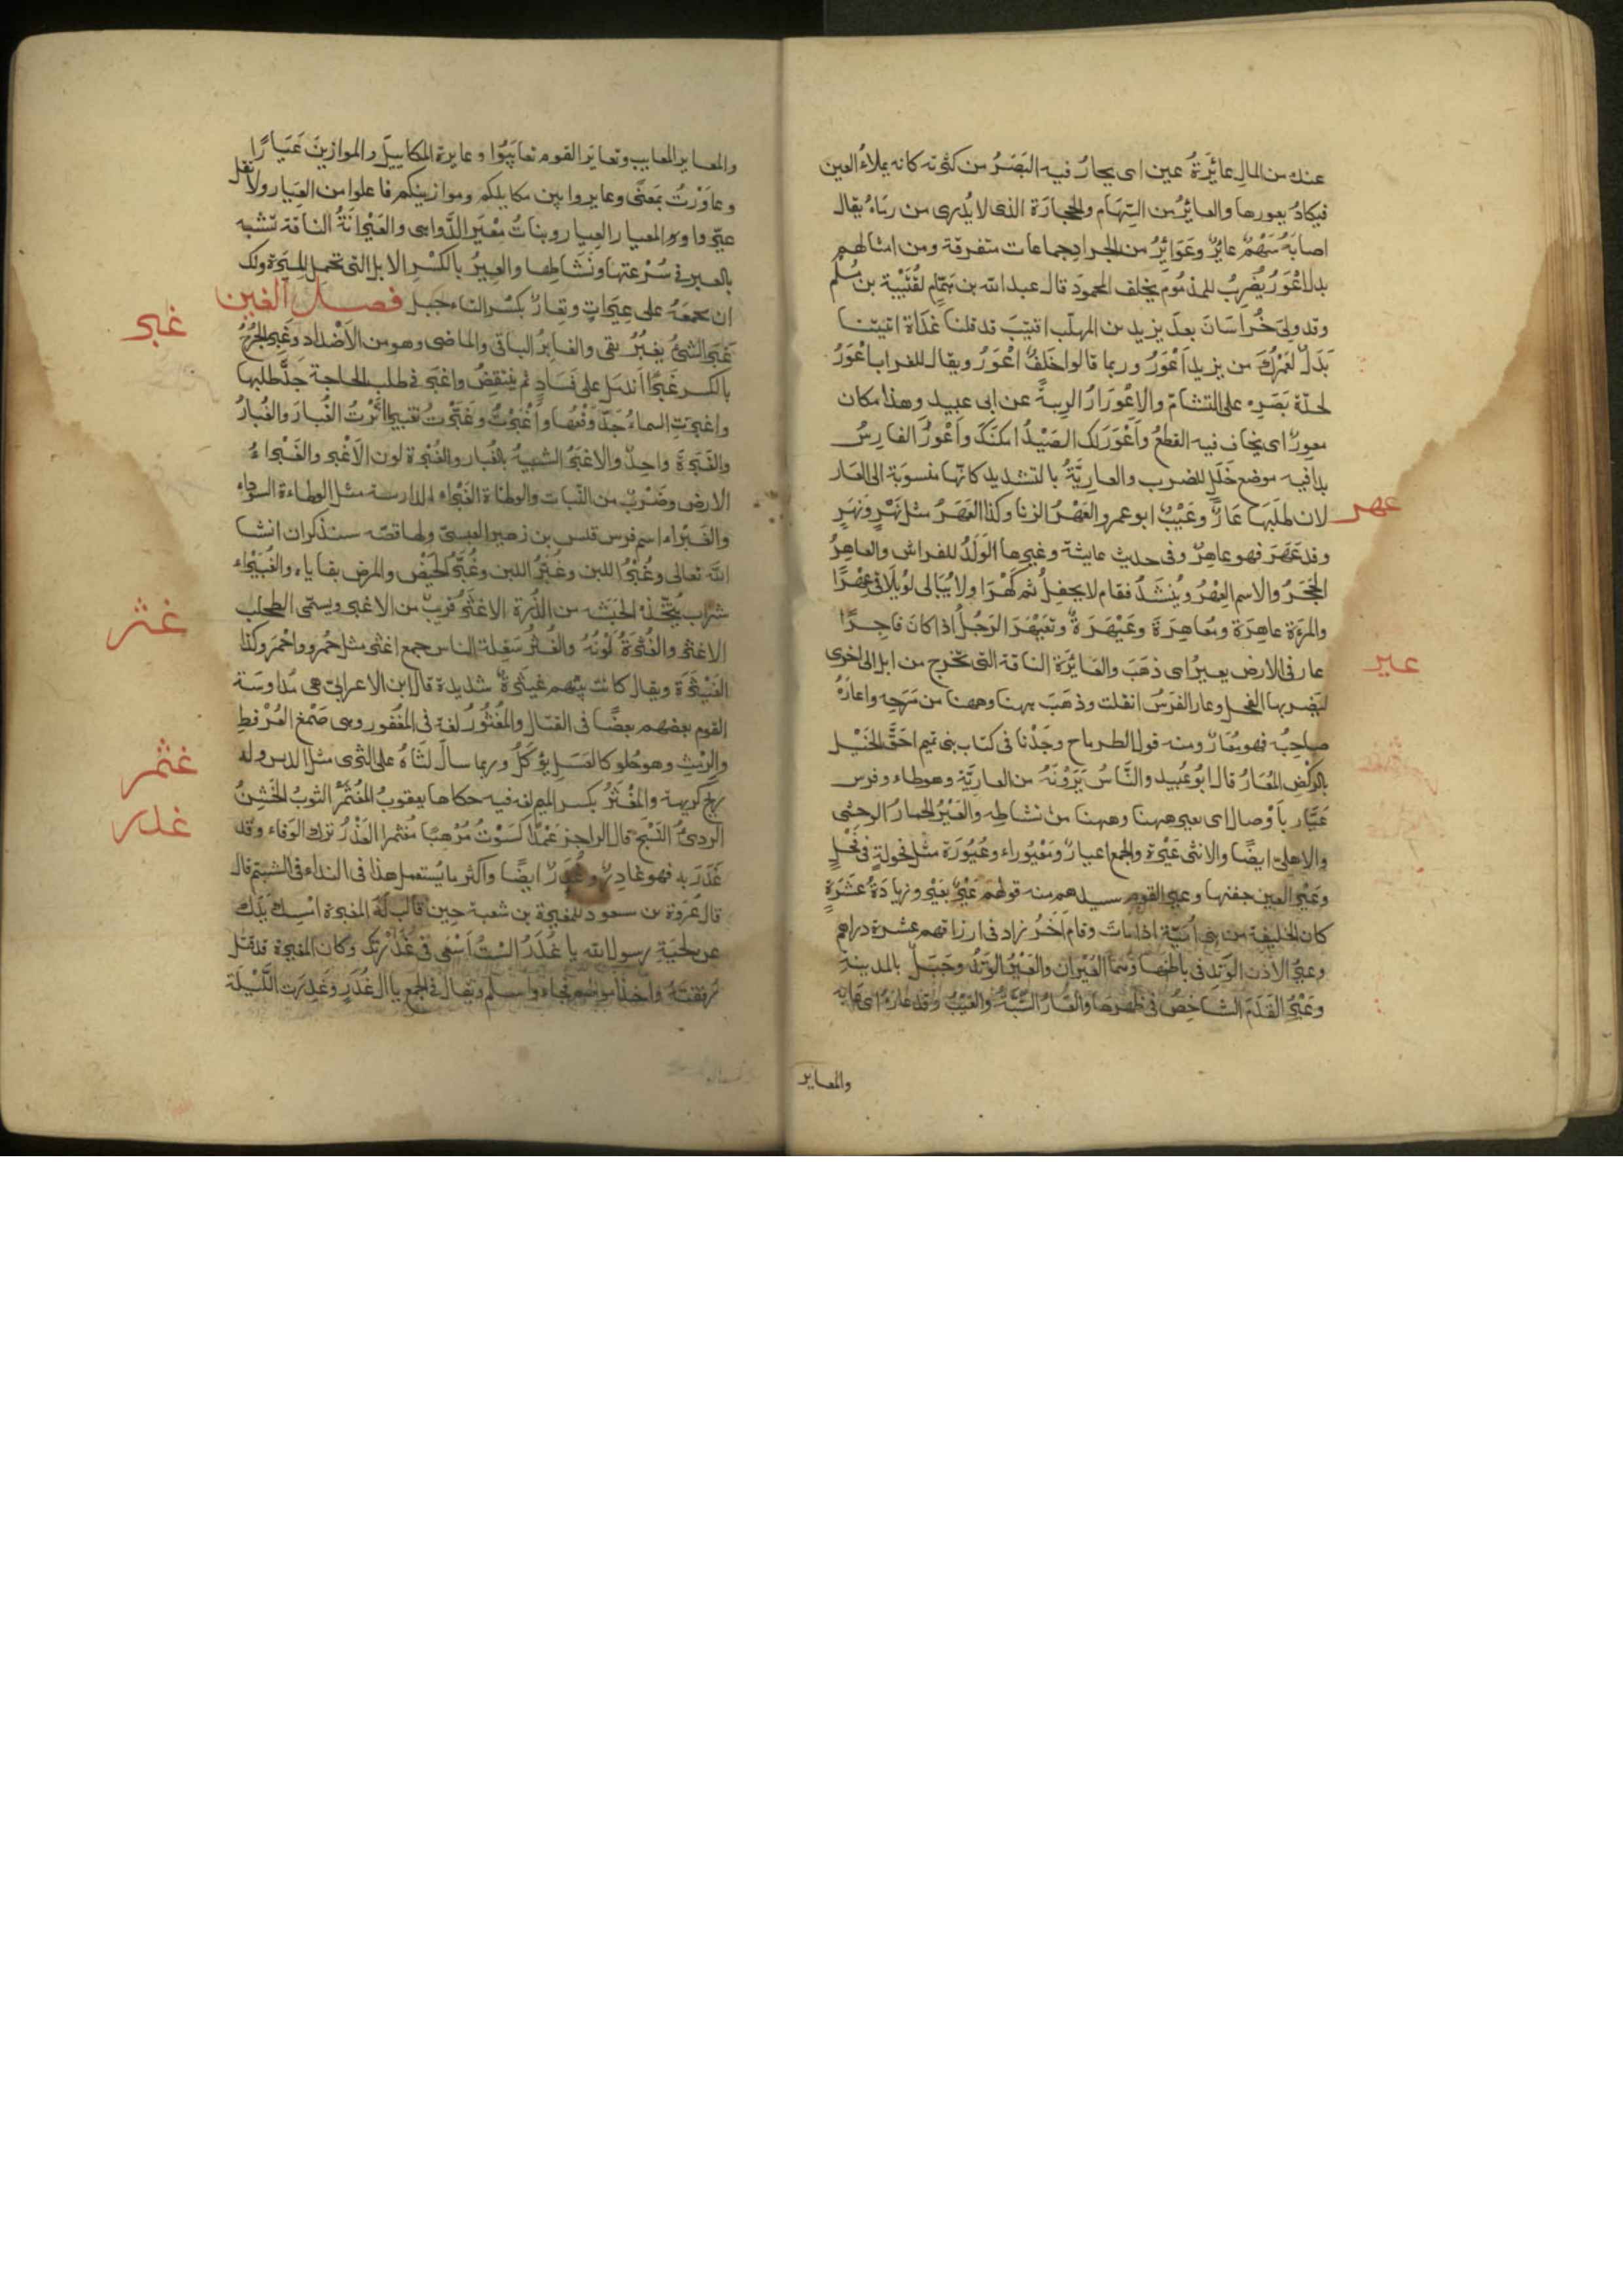 عنك من المالِ عائِرَةُ عين اى يحارُ فيه البَصَرُ من كثرته كانه يملاءُ العين
فيكادُ يعورها والعائِرُ من السِّهَام والحجَارَة الذى لا يُدرى من رمَاهُ يقال
اصابَهُ سَهْمٌ عائِرٌ وعَوَائِرُ من الجراد جماعات متفرقة ومن امثالهم
بدل اعْوَرُ يُضرِبُ للمذمُوم يخلف المحمودَ قال عبد الله بن همّامٍ لقُتَيْبَة بن مُسْلم
وقد ولى خُرَاسَانَ بعدَ يزيد بن المهلّب اقتيبَ قد قلنا غَدَاةَ اتيتنا
بَدَلٌ لعَمْرُكَ من يزيد اَعْوَرُ وربما قالوا خَلَفٌ اعْوَرُ ويقال للغراب اعْوَرُ
لحدّة بَصَرِهِ على التشامّ والاعْوِرَارُ الريبةُ عن ابى عبيد وهذا مكان
معوِرٌ اى يخاف فيه القطعُ واَعْوَرَ لك الصَيْدُ امكنكَ واَعْوَرَ الفارِسُ
بدا فيه موضع خَلَلٍ للضرب والعاريَّةُ بالتشديد كانّها منسوبَة الى العَار
لان طلَبَهَا عَارٌ وعَيْبٌ ابو عمرو العَهْرُ الزنا وكذا العَهَرُ مثل نَهْرٍ ونَهَرٍ
عهر
وقد عَهَرَ فهو عاهِرٌ وفى حديث عايشة وغيرها الوَلَدُ للفراش والعاهِرُ
الحَجَرُ والاسم العِهْرُ ويُنشَدُ فقام لا يحفِلُ ثم كَهْرَا ولا يُبَالى لو يُلَاقى عِهْرًا
والمرءَة عاهِرَة ومُعاهِرَة وعَيْهَرَةٌ وتعَيْهَرَ الرَجُلُ اذا كانَ فاجِرًا
عير
عار فى الارض يعيرُ اى ذهَبَ والعَائِرَة الناقة التى تخرج من ابل الى اخرى
ليَضربها الفحل وعار الفرَسُ انفلت وذهَبَ ههنا وههنا من مَرَحِهِ واعَارَهُ
صاحِبُه فهو مُعَارٌ ومنه قول الطرماح وجَدْنا فى كتاب بنى تميم احَقُّ الخَيْل
بالركْضِ المُعَارُ قال ابو عُبيد والنَّاسُ يَرَوْنَهُ من العاريَّة وهو خطاء وفرس
عَيَّار بأوْصال اى يعير ههنا وههنا من نشاطِه والعَيْرُ الحِمَارُ الوحشى
والاهلى ايضًا والانثى عَيْرة والجمع اعيارٌ ومَعْيُوراء وعُيُورَة مثل فحولةٍ فى فَحْلٍ
وعَيْرُ العين جفنها وعير القوم سيدهم منه قولهم عَيْرٌ بعَيْرٍ وزيادَةُ عشَرَةٍ
كان الخليفة من بنى اُميّة اذا ماتَ وقام آخَرُ زاد فى ارزاقهم عشرة دراهم
وعيرُ الاذن الوَتِد فى باطنها وهمَا العَيْرَان والعَيْرُ الوَتِدُ وجَبَلٌ بالمدينة
وعَيْرُ القَدَم الشاخِصُ فى ظهرهَا والعَارُ السُّبَّةُ والعَيْبُ وقد عارَهُ اى عَابَه
والمعاير
والمعاير المعايب وتعايَرَ القوم تعايَبُوا وعايرة المكاييل والموازين عَيَارًا
وعاوَرْتُ بمَعنًى وعايروا بين مكاييلكم وموازينكم فاعلوا من العِيَار ولا تقل
عيّروا والمعيار العِيار وبناتُ مِعْيَر الدَّواهى والعَيْرانَةُ الناقة تشبه
بالعير فى سُرْعتها ونَشَاطها والعِيرُ بالكسْرِ الابل التى تحمل المِيْرَة ولك
ان تجمَعَهُ على عِيَراتٍ وتِعارٌ بكسْر التاء جبل فصل الغين
غبر
غَبَرَ الشئُ يغبُرُ بقى والغابِرُ الباقى والماضى وهو من الاَضْداد وغَبِرَ الجُرْحُ
بالكسر غَبَرًا اندَمَل على فَسَادٍ ثم ينتقِضُ واغبَرَ فى طلب الحاجة جدَّ طلبها
واغبَرَتِ السماءُ جَدّ وَقْعُها واَغْبَرْتُ وغَبَّرْتُ تغبيرًا اثَرْتُ الغُبارَ والغُبارُ
والغَبَرَةُ واحِدٌ والاغبَرُ الشبيهُ بالغُبار والغُبْرَة لون الاَغْبرِ والغَبْراءُ
الارض وضَرْبٌ من النّبات والوطئاة الغَبْراء الدارسة مثل الوطاءة السوداء
والغَبْراء اسم فرس قيس بن زهير العبسىّ ولها قصّة سنذكر ان انشا
اللّٰه تعالى وغُبْرُ اللبن وغُبَّرُ اللبن وغُبَّرُ الحَيْضِ والمرض بقاياه والغُبَيْراء
غثر
شراب يتّخذُه الحَبَشَة من الذُّرة الاغثَرُ قريبٌ من الاغبر ويسمّى الطحلب
الاغثَر والغُثْرَةُ لَوْنُهُ والغُثْرُ سَفِلة الناس جمع اغثر مثل حُمْرٍ واَحْمَر وكذا
الغَيْثَرَة ويقال كانت بينهم غيثَرةٌ شديدة قال ابن الاعرابى هى مُداوسَة
القوم بعضهم بعضًا فى القتال والمُغْثُورُ لغة فى المُغْفُور وهى صَمْغ العُرْفطِ
غثمر
والرِمْثِ وهو حُلو كالعَسَل يؤكَلُ وربما سال لثَاهُ على الثرى مثل الدبس وله
ريح كريهة والمِغْثَرُ بكسر الميم لغة فيه حكاها يعقوبُ المُغَثْمَرُ الثوبُ الخَشِنُ
غدر
الردىُّ النَسْج قال الراجز عَمْدًا كَسَوْتُ مُرْهِبًا مُغَثمرا الغَدْرُ ترك الوَفاء وقد
غَدَرَ به فهو غادِرٌ وغُدَرٌ ايضًا واكثر ما يُستعمل هذا فى النداء فى الشتم قال
قال عُرْوَة بن مسعود للمغيرة بن شعبة حِين قال لَهُ المغيرة امْسِك يَدَكَ
عن لحْيَةِ رسول الله يا غُدَرُ السْتُ اَسْعَى فى غَدْرَتِك وكان المغيرة قد قتل
رفقتَهُ واخذ اموالهم فجاءِ واسلَم ويقال فى الجمع يا الَ غُدَرَ وغَدِرَت اللّيلَة